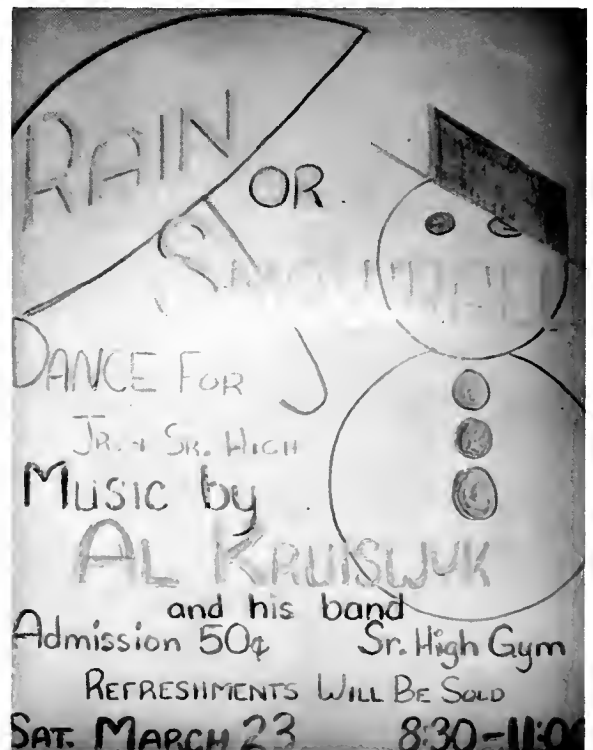 RAIN
OR
SNOWBALL
DANCE FOR
JR. + SR. HIGH
Music by
AL KRUISWUK
and his band
Admission 50¢ Sr. High Gym
REFRESHMENTS WILL BE SOLD
SAT. MARCH 23 8:30-11:00